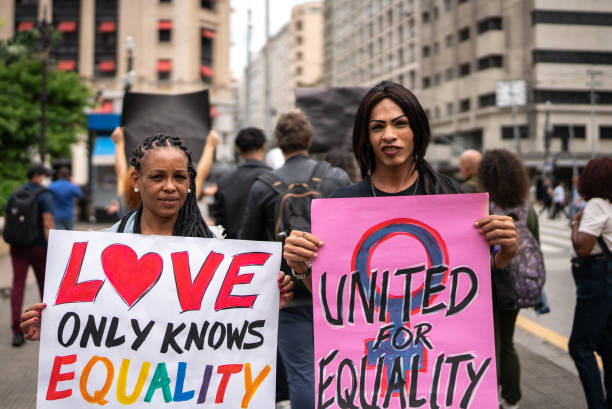 LOVE
ONLY KNOWS
EQUALITY
UNITED
FOR
EQUALITY